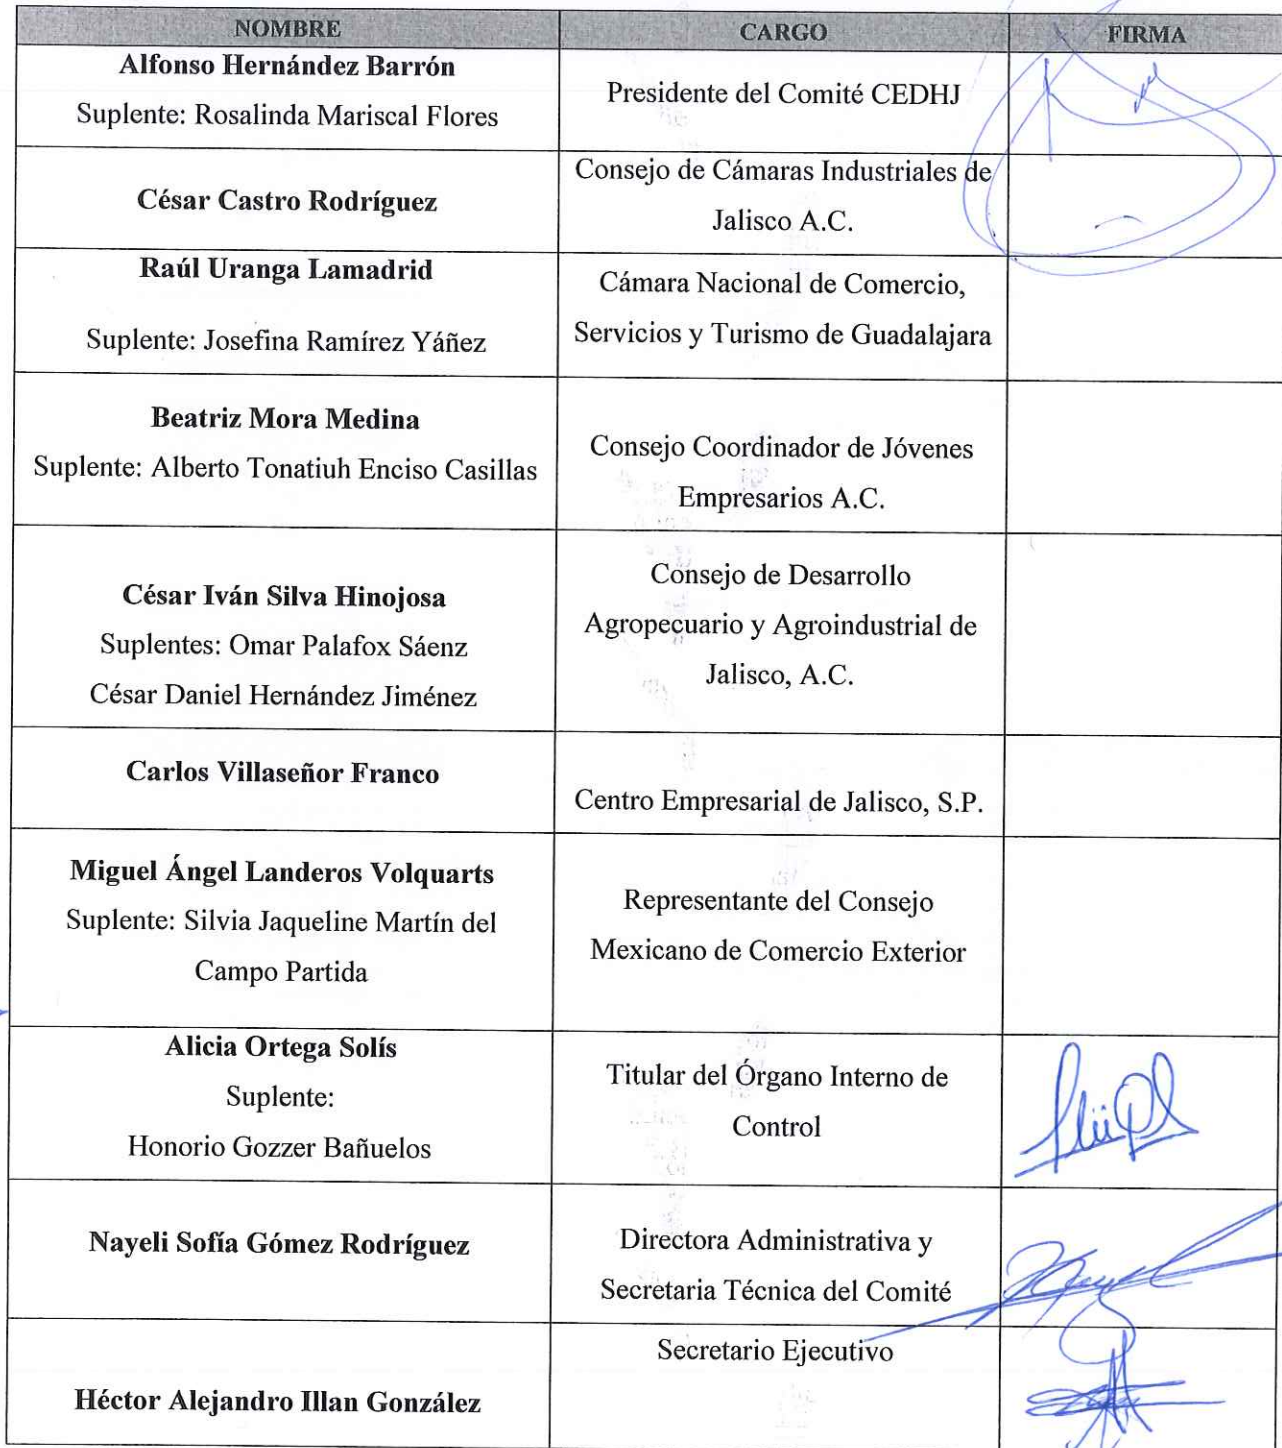 NOMBRE CARGO FIRMA
Alfonso Hernández Barrón
Suplente: Rosalinda Mariscal Flores
Presidente del Comité CEDHJ
César Castro Rodríguez
Consejo de Cámaras Industriales de
Jalisco A.C.
Raúl Uranga Lamadrid
Suplente: Josefina Ramírez Yáñez
Cámara Nacional de Comercio,
Servicios y Turismo de Guadalajara
Beatriz Mora Medina
Suplente: Alberto Tonatiuh Enciso Casillas
Consejo Coordinador de Jóvenes
Empresarios A.C.
César Iván Silva Hinojosa
Suplentes: Omar Palafox Sáenz
César Daniel Hernández Jiménez
Consejo de Desarrollo
Agropecuario y Agroindustrial de
Jalisco, A.C.
Carlos Villaseñor Franco
Centro Empresarial de Jalisco, S.P.
Miguel Ángel Landeros Volquarts
Suplente: Silvia Jaqueline Martín del
Campo Partida
Representante del Consejo
Mexicano de Comercio Exterior
Alicia Ortega Solís
Suplente:
Honorio Gozzer Bañuelos
Titular del Órgano Interno de
Control
Nayeli Sofía Gómez Rodríguez
Directora Administrativa y
Secretaria Técnica del Comité
Héctor Alejandro Illan González
Secretario Ejecutivo